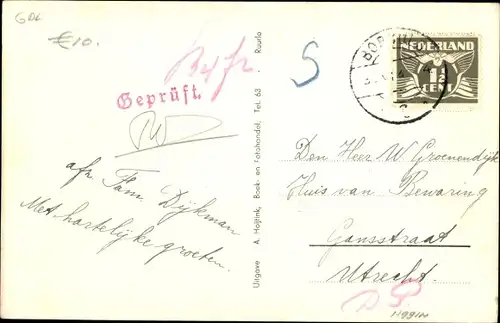 GDL
€10.
Geprüft.
S
BOR
NEDERLAND
1½
CENT
afz. Fam. Dijkman
Met hartelijke groeten.
Uitgave A. Hojtink, Boek- en Fotohandel, Tel. 63 . Ruurlo
Den Heer W. Groenendijk
Huis van Bewaring
Gansstraat
Utrecht.